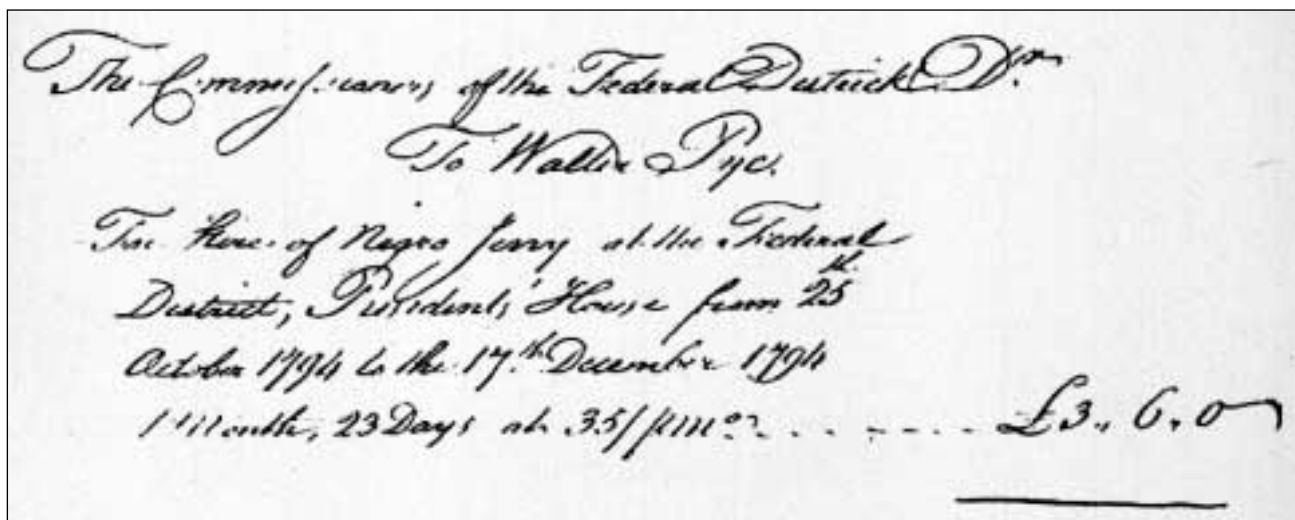 The Commissioners of the Federal District Dr.
To Walter Pye.
For hire of Negro Jerry at the Federal
District, Presidents' House from 25th
October 1794 to the 17th December 1794
1 Month, 23 Days at 35/ p mo. £3. 6. 0